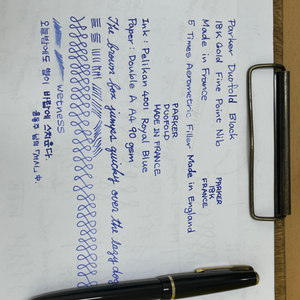 Parker Duofold Black
18K Gold Fine Point Nib
Made in France
5 Times Aerometric Filler Made in England
PARKER
18K
FRANCE
PARKER
DUOFOLD
MADE IN FRANCE
Ink: Pelikan 4001 Royal Blue
Paper: Double A A4 90 gsm
The brown fox jumps quickly over the lazy dog
wetness
오늘밤에도 별이 바람에 스치운다.
윤동주 님의 中